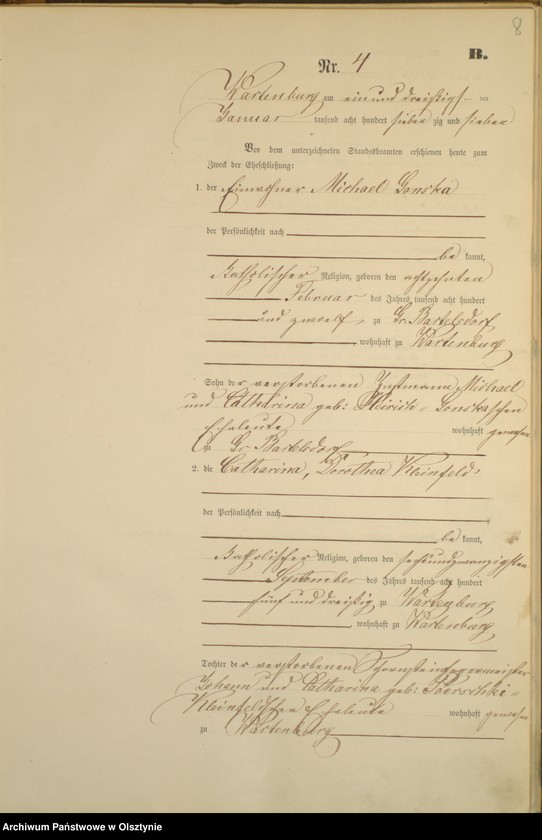 8
B.
Nr. 4
Wartenburg am ein und dreißigst- en
Januar tausend acht hundert sieben zig und sieben
Vor dem unterzeichneten Standesbeamten erschienen heute zum
Zweck der Eheschließung:
1. der Einwohner Michael Gonska
der Persönlichkeit nach
be kannt,
katholischer Religion, geboren den achtzehnten
Februar des Jahres tausend acht hundert
und zwoelf, zu Gr. Bartelsdorf
wohnhaft zu Wartenburg
Sohn der verstorbenen Instmann Michael
und Catharina geb: Gonska'schen
Eheleute wohnhaft gewesen
zu Gr. Bartelsdorf
2. die Catharina, Dorothea Kleinfeld
der Persönlichkeit nach
be kannt,
katholischer Religion, geboren den sechsundzwanzigsten
September des Jahres tausend acht hundert
fünf und dreißig zu Wartenburg
wohnhaft zu Wartenburg
Tochter der verstorbenen Schornsteinfegermeister
Johann und Catharina geb:
Kleinfeldschen Eheleute wohnhaft gewesen
zu Wartenburg
Archiwum Państwowe w Olsztynie